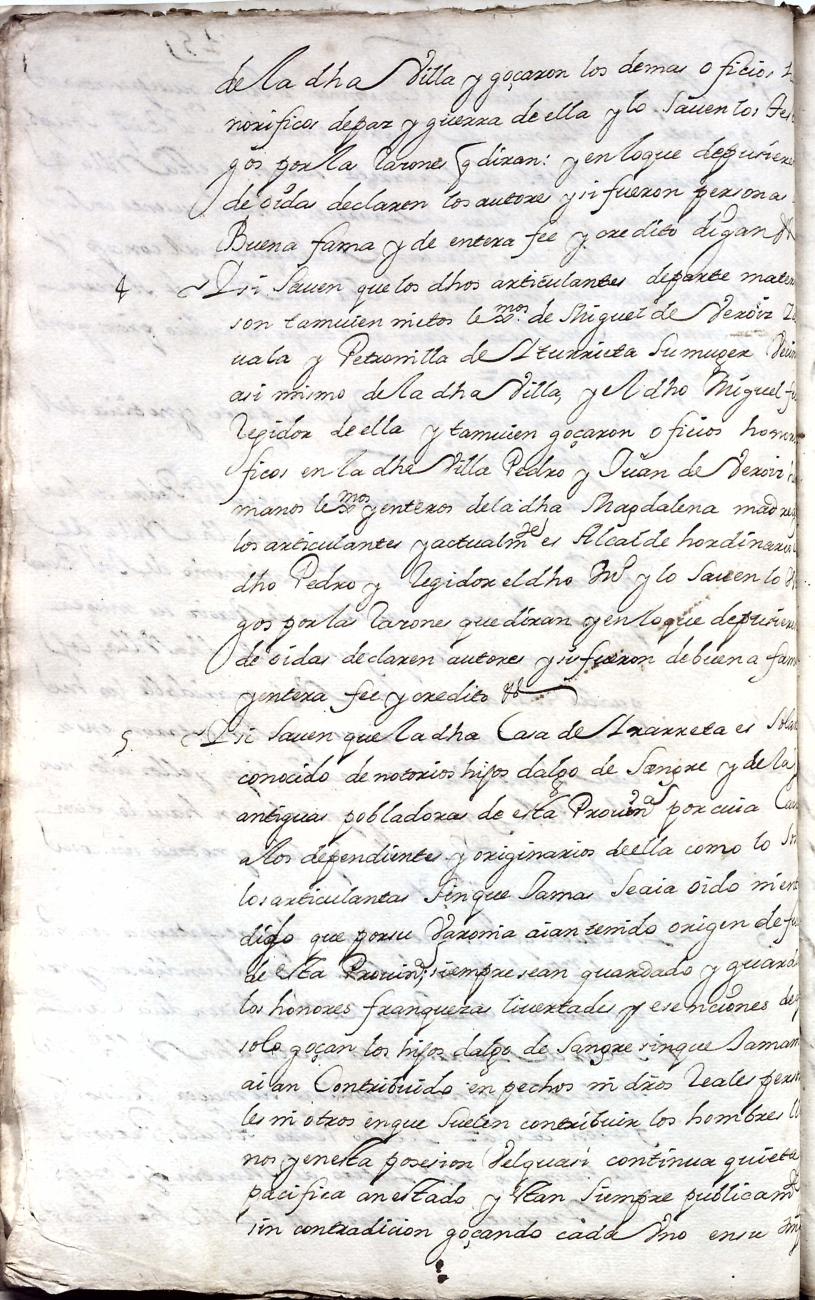 de la dha Villa y goçaron los demas oficios
norificos de paz y guerra de ella y lo saven los tes
gos por las raçones q diran: y en lo que depusiere
de oidas declaren los autores y si fueron personas
Buena fama y de entera fee y credito digan &
4 Y si saven que los dhos articulantes de parte mater
son tamuien nietos lexmos. de Miguel de Veroiz
uala y Petronilla de Yturrieta su muger Veçin
asi mismo de la dha Villa, y el dho Miguel fu
regidor de ella y tamuien goçaron oficios honor
ficos en la dha Villa Pedro y Juan de Veroiz
manos lexmos y enteros de la dha Magdalena madre
los articulantes y actualmte es Alcalde hordinario
dho Pedro y regidor el dho Jn y lo saven lo
gos por las raçones que diran y en lo que depusiere
de oidas declaren autores y si fueron de buena fam
y entera fee y credito &
5. Y si saven que la dha Casa de Yrarreta es Solar
conocido de notorios hijos dalgo de sangre y de las
antiguas pobladoras de esta Provinª por cuia Cau
a los dependientes y originarios de ella como lo
los articulantes sin que Jamas se aia oido ni en
dido que por su Varonia aian tenido origen de fu
de esta Provinª; siempre se an guardado y guard
los honores franqueças livertades y esenciones de q
solo goçan los hijos dalgo de sangre sin que Jamas
aian Contribuido en pechos ni dros reales perso
les ni otros en que suelen contribuir los hombres
nos y en esta posesion Vel quasi continua quieta
pacifica an estado y estan siempre publicamte
sin contradicion goçando cada Vno en su